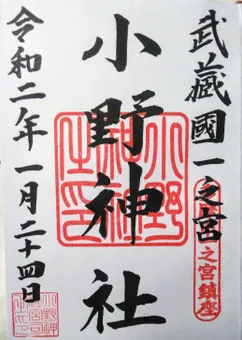 武蔵國一之宮
一之宮鎮座
小野神社
小野神社之印
令和二年一月二十四日